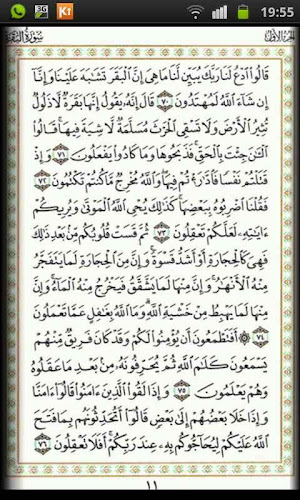 19:55
سورة البقرة
الجزء الأول
قَالُوا۟ ٱدْعُ لَنَا رَبَّكَ يُبَيِّن لَّنَا مَا هِىَ إِنَّ ٱلْبَقَرَ تَشَٰبَهَ عَلَيْنَا وَإِنَّآ
إِن شَآءَ ٱللَّهُ لَمُهْتَدُونَ ٧٠ قَالَ إِنَّهُۥ يَقُولُ إِنَّهَا بَقَرَةٌ لَّا ذَلُولٌ
تُثِيرُ ٱلْأَرْضَ وَلَا تَسْقِى ٱلْحَرْثَ مُسَلَّمَةٌ لَّا شِيَةَ فِيهَا ۚ قَالُوا۟
ٱلْـَٰٔنَ جِئْتَ بِٱلْحَقِّ ۚ فَذَبَحُوهَا وَمَا كَادُوا۟ يَفْعَلُونَ ٧١ وَإِذْ
قَتَلْتُمْ نَفْسًا فَٱدَّٰرَْٰٔتُمْ فِيهَا ۖ وَٱللَّهُ مُخْرِجٌ مَّا كُنتُمْ تَكْتُمُونَ ٧٢
فَقُلْنَا ٱضْرِبُوهُ بِبَعْضِهَا ۚ كَذَٰلِكَ يُحْىِ ٱللَّهُ ٱلْمَوْتَىٰ وَيُرِيكُمْ
ءَايَٰتِهِۦ لَعَلَّكُمْ تَعْقِلُونَ ٧٣ ثُمَّ قَسَتْ قُلُوبُكُم مِّنۢ بَعْدِ ذَٰلِكَ
فَهِىَ كَٱلْحِجَارَةِ أَوْ أَشَدُّ قَسْوَةً ۚ وَإِنَّ مِنَ ٱلْحِجَارَةِ لَمَا يَتَفَجَّرُ
مِنْهُ ٱلْأَنْهَٰرُ ۚ وَإِنَّ مِنْهَا لَمَا يَشَّقَّقُ فَيَخْرُجُ مِنْهُ ٱلْمَآءُ ۚ وَإِنَّ
مِنْهَا لَمَا يَهْبِطُ مِنْ خَشْيَةِ ٱللَّهِ ۗ وَمَا ٱللَّهُ بِغَٰفِلٍ عَمَّا تَعْمَلُونَ
٧٤ أَفَتَطْمَعُونَ أَن يُؤْمِنُوا۟ لَكُمْ وَقَدْ كَانَ فَرِيقٌ مِّنْهُمْ
يَسْمَعُونَ كَلَٰمَ ٱللَّهِ ثُمَّ يُحَرِّفُونَهُۥ مِنۢ بَعْدِ مَا عَقَلُوهُ
وَهُمْ يَعْلَمُونَ ٧٥ وَإِذَا لَقُوا۟ ٱلَّذِينَ ءَامَنُوا۟ قَالُوٓا۟ ءَامَنَّا
وَإِذَا خَلَا بَعْضُهُمْ إِلَىٰ بَعْضٍ قَالُوٓا۟ أَتُحَدِّثُونَهُم بِمَا فَتَحَ
ٱللَّهُ عَلَيْكُمْ لِيُحَآجُّوكُم بِهِۦ عِندَ رَبِّكُمْ ۚ أَفَلَا تَعْقِلُونَ ٧٦
١١